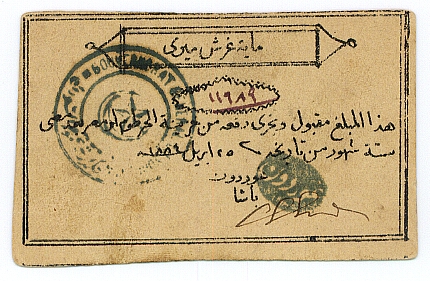 ماية غرش ميرى
١١٩٨٣
هذا المبلغ مقبول ويجرى دفعه من خزينة الخرطوم او مصر بعد مضى
ستة شهور من تاريخه ٢٥ ابريل ١٨٨٤
غوردون
باشا